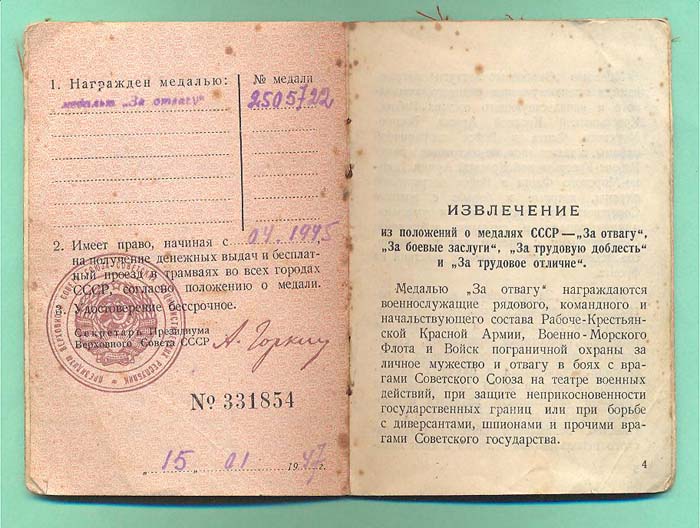 1. Награжден медалью:
№ медали
медалью „За отвагу“
2505722
2. Имеет право, начиная с 04.1945,
на получение денежных выдач и бесплат-
ный проезд в трамваях во всех городах
СССР, согласно положению о медали.
Удостоверение бессрочное.
Секретарь Президиума
Верховного Совета СССР
А. Горкин
№ 331854
„15“ 01 1947 г.
ИЗВЛЕЧЕНИЕ
из положений о медалях СССР—„За отвагу“,
„За боевые заслуги“, „За трудовую доблесть“
и „За трудовое отличие“.
Медалью „За отвагу“ награждаются
военнослужащие рядового, командного и
начальствующего состава Рабоче-Крестьян-
ской Красной Армии, Военно-Морского
Флота и Войск пограничной охраны за
личное мужество и отвагу в боях с вра-
гами Советского Союза на театре военных
действий, при защите неприкосновенности
государственных границ или при борьбе
с диверсантами, шпионами и прочими вра-
гами Советского государства.
4